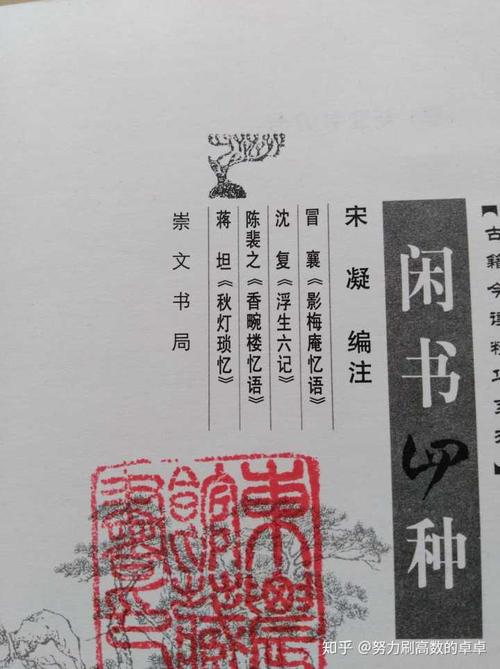 【古籍今读精巧系列】
闲书四种
宋凝 编注
冒襄《影梅庵忆语》
沈复《浮生六记》
陈裴之《香畹楼忆语》
蒋坦《秋灯琐忆》
崇文书局
知乎 @努力刷高数的卓卓